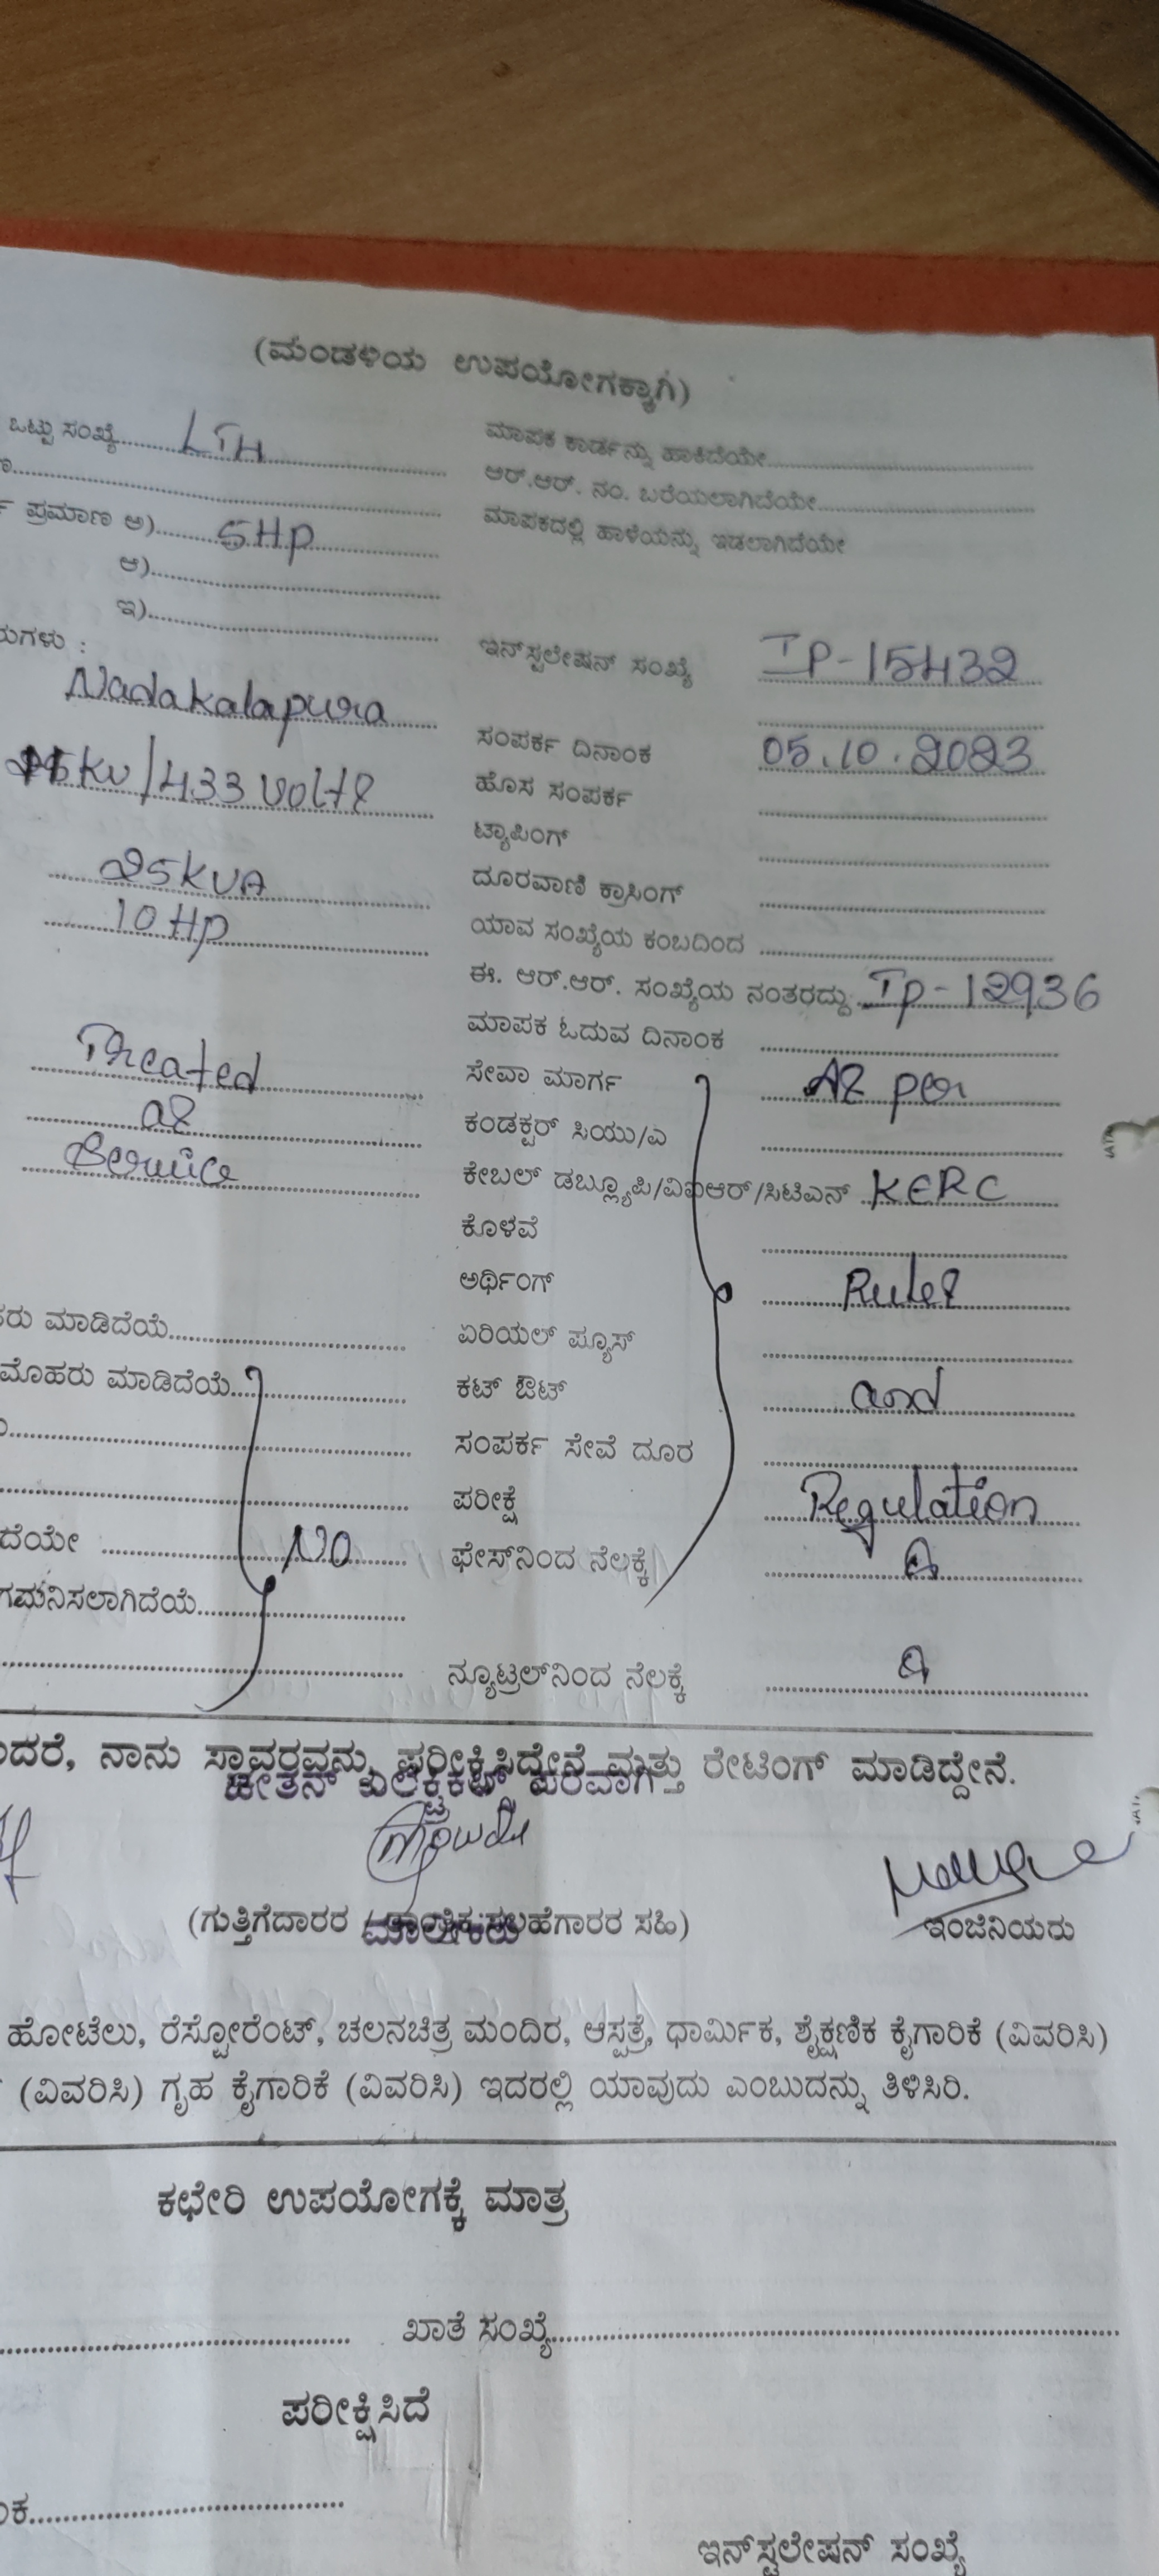 (ಮಂಡಳಿಯ ಉಪಯೋಗಕ್ಕಾಗಿ)
ಒಟ್ಟು ಸಂಖ್ಯೆ
ಮಾಪಕ ಕಾರ್ಡನ್ನು ಹಾಕಿದೆಯೇ
ಆರ್.ಆರ್. ನಂ. ಬರೆಯಲಾಗಿದೆಯೇ
ಪ್ರಮಾಣ ಅ) 5HP
ಮಾಪಕದಲ್ಲಿ ಹಾಳೆಯನ್ನು ಇಡಲಾಗಿದೆಯೇ
ಆ)
ಇ)
ಇನ್‌ಸ್ಟಲೇಷನ್ ಸಂಖ್ಯೆ IP-15432
Nadakalapura
ಸಂಪರ್ಕ ದಿನಾಂಕ 05.10.2023
KV/433 Volts
ಹೊಸ ಸಂಪರ್ಕ
ಟ್ಯಾಪಿಂಗ್
25KVA
ದೂರವಾಣಿ ಕ್ರಾಸಿಂಗ್
10 HP
ಯಾವ ಸಂಖ್ಯೆಯ ಕಂಬದಿಂದ
ಈ. ಆರ್.ಆರ್. ಸಂಖ್ಯೆಯ ನಂತರದ್ದು Ip-12936
ಮಾಪಕ ಓದುವ ದಿನಾಂಕ
Treated
ಸೇವಾ ಮಾರ್ಗ As per
as
ಕಂಡಕ್ಟರ್ ಸಿಯು/ಎ
Service
ಕೇಬಲ್ ಡಬ್ಲ್ಯೂಪಿ/ವಿಐಆರ್/ಸಿಟಿಎಸ್ KERC
ಕೊಳವೆ
ಅರ್ಥಿಂಗ್ Rules
ಮಾಡಿದೆಯೆ
ಏರಿಯಲ್ ಫ್ಯೂಸ್
ಮೊಹರು ಮಾಡಿದೆಯೆ
ಕಟ್ ಔಟ್ and
ಸಂಪರ್ಕ ಸೇವೆ ದೂರ
ಪರೀಕ್ಷೆ Regulation
No
ಫೇಸ್‌ನಿಂದ ನೆಲಕ್ಕೆ
ಗಮನಿಸಲಾಗಿದೆಯೆ
ನ್ಯೂಟ್ರಲ್‌ನಿಂದ ನೆಲಕ್ಕೆ
ನಾನು ಸ್ಥಾವರವನ್ನು ಪರೀಕ್ಷಿಸಿದ್ದೇನೆ ಮತ್ತು ರೇಟಿಂಗ್ ಮಾಡಿದ್ದೇನೆ.
ಚೇತನ್ ಎಲೆಕ್ಟ್ರಿಕಲ್ಸ್ ಪರವಾಗಿ
(ಗುತ್ತಿಗೆದಾರರ / ತಾಂತ್ರಿಕ ಸಲಹೆಗಾರರ ಸಹಿ)
ಮಾಲೀಕರು
ಇಂಜಿನಿಯರು
ಹೋಟೆಲು, ರೆಸ್ಟೋರೆಂಟ್, ಚಲನಚಿತ್ರ ಮಂದಿರ, ಆಸ್ಪತ್ರೆ, ಧಾರ್ಮಿಕ, ಶೈಕ್ಷಣಿಕ ಕೈಗಾರಿಕೆ (ವಿವರಿಸಿ)
(ವಿವರಿಸಿ) ಗೃಹ ಕೈಗಾರಿಕೆ (ವಿವರಿಸಿ) ಇದರಲ್ಲಿ ಯಾವುದು ಎಂಬುದನ್ನು ತಿಳಿಸಿರಿ.
ಕಛೇರಿ ಉಪಯೋಗಕ್ಕೆ ಮಾತ್ರ
ಖಾತೆ ಸಂಖ್ಯೆ
ಪರೀಕ್ಷಿಸಿದೆ
ಇನ್‌ಸ್ಟಲೇಷನ್ ಸಂಖ್ಯೆ